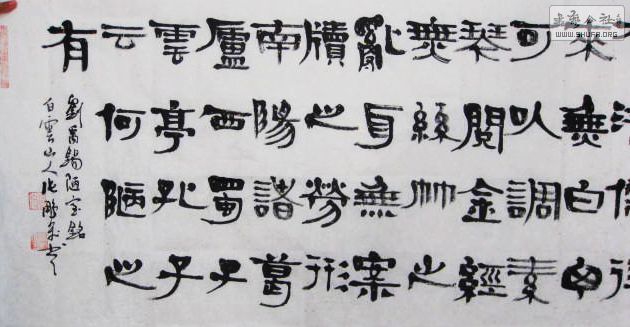 來無白
可以調素
琴閱金經
無絲竹之
亂耳無案
牘之勞形
南陽諸葛
廬西蜀子
雲亭孔子
云何陋之
有
劉禹錫陋室銘
白雲山人
书艺公社
WWW.SHUFA.ORG